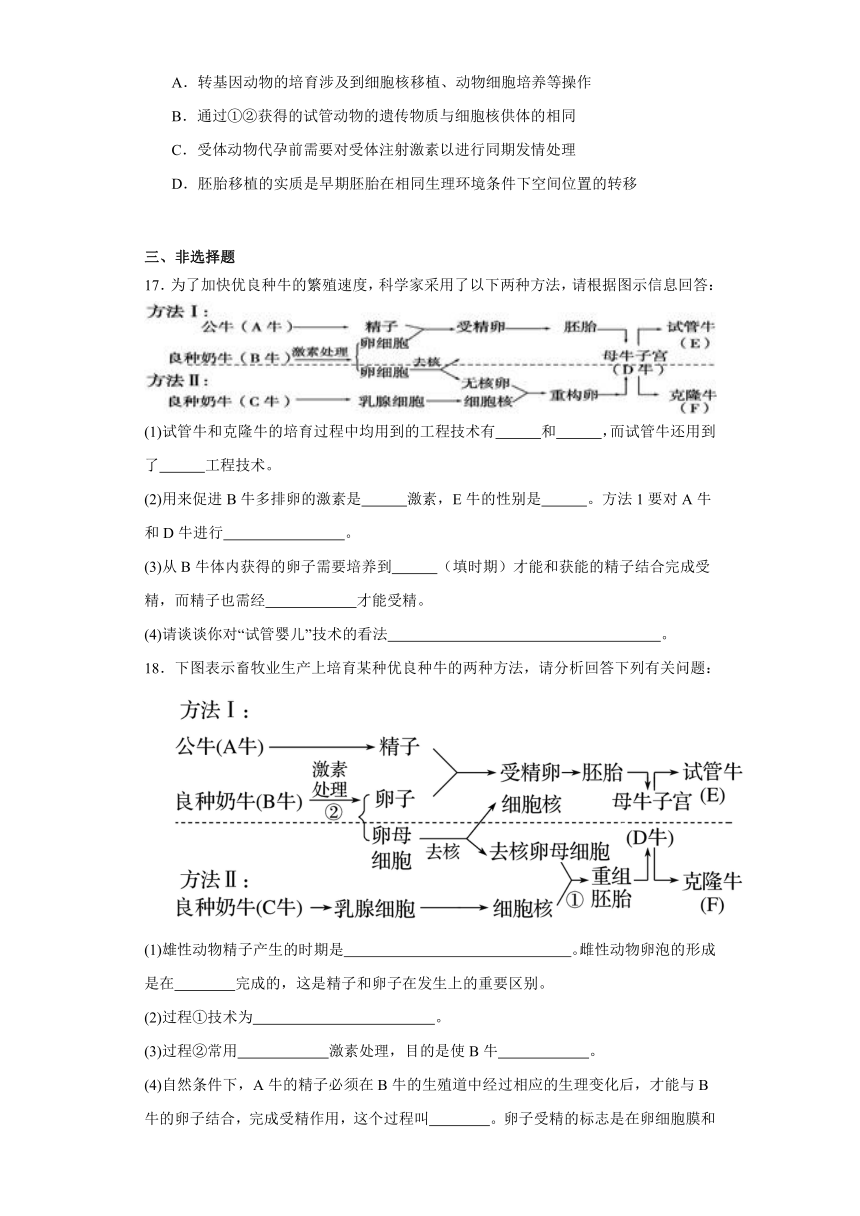 A．转基因动物的培育涉及到细胞核移植、动物细胞培养等操作
B．通过①②获得的试管动物的遗传物质与细胞核供体的相同
C．受体动物代孕前需要对受体注射激素以进行同期发情处理
D．胚胎移植的实质是早期胚胎在相同生理环境条件下空间位置的转移
三、非选择题
17．为了加快优良种牛的繁殖速度，科学家采用了以下两种方法，请根据图示信息回答：
方法Ⅰ：
公牛（A牛） 精子 受精卵 胚胎 试管牛
卵细胞 （E）
良种奶牛（B牛） 激素处理 去核 母牛子宫
卵细胞 （D牛）
方法Ⅱ： 无核卵
良种奶牛（C牛） 乳腺细胞 细胞核 重构卵 克隆牛
（F）
(1)试管牛和克隆牛的培育过程中均用到的工程技术有______和______，而试管牛还用到
了______工程技术。
(2)用来促进B牛多排卵的激素是______激素，E牛的性别是______。方法1要对A牛
和D牛进行________________。
(3)从B牛体内获得的卵子需要培养到______（填时期）才能和获能的精子结合完成受
精，而精子也需经____________才能受精。
(4)请谈谈你对“试管婴儿”技术的看法____________________________________。
18．下图表示畜牧业生产上培育某种优良种牛的两种方法，请分析回答下列有关问题：
方法Ⅰ：
公牛(A牛) 精子
激素 受精卵 胚胎 试管牛
良种奶牛(B牛) 处理 卵子 细胞核 母牛子宫 (E)
②
卵母 (D牛)
细胞 去核 去核卵母细胞
方法Ⅱ： 重组 克隆牛
良种奶牛(C牛) 乳腺细胞 细胞核 ① 胚胎 (F)
(1)雄性动物精子产生的时期是______________________________。雌性动物卵泡的形成
是在________完成的，这是精子和卵子在发生上的重要区别。
(2)过程①技术为________________________。
(3)过程②常用____________激素处理，目的是使B牛____________。
(4)自然条件下，A牛的精子必须在B牛的生殖道中经过相应的生理变化后，才能与B
牛的卵子结合，完成受精作用，这个过程叫________。卵子受精的标志是在卵细胞膜和